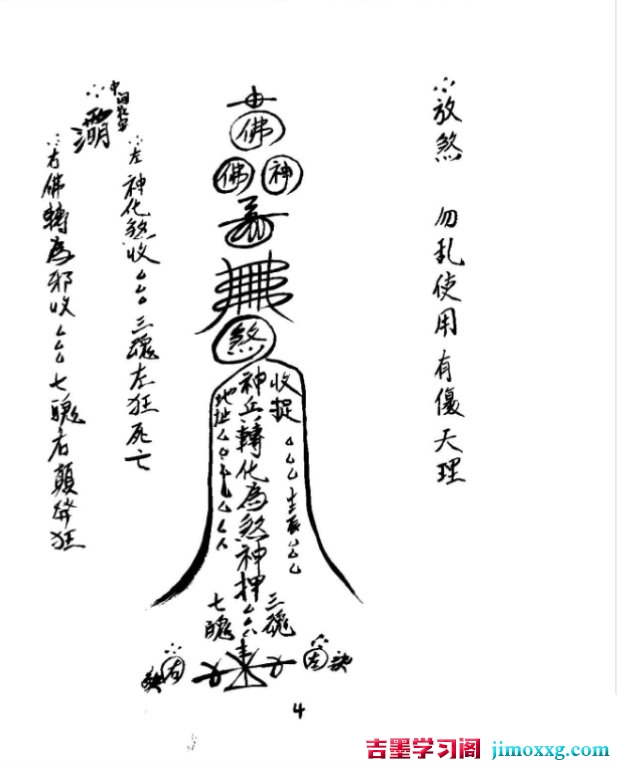 ∴放煞 勿乱使用有傷天理
佛
佛 神
煞
收捉△△△生辰△△△
神兵轉化為煞神押△△△
地址△△△△△△△
三魂
七魄
∴左 訣
∴右 訣
∴左神化煞收△△△三魂左狂死亡
∴中間
∴右佛轉為邪收△△△七魄右顛發狂
4
吉墨学习阁 jimoxxg.com